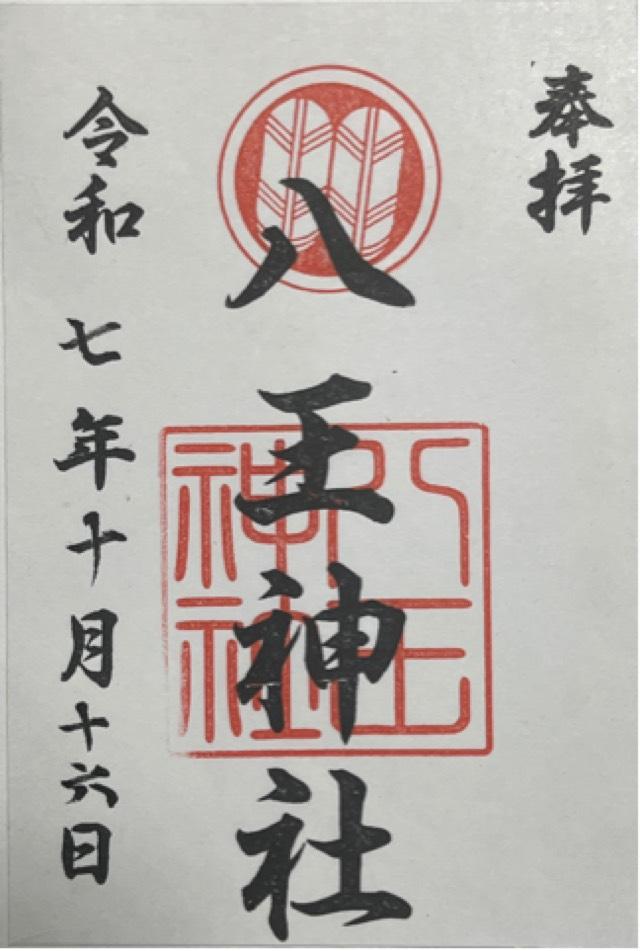 奉拝
八王神社
八王神社
令和七年十月十六日